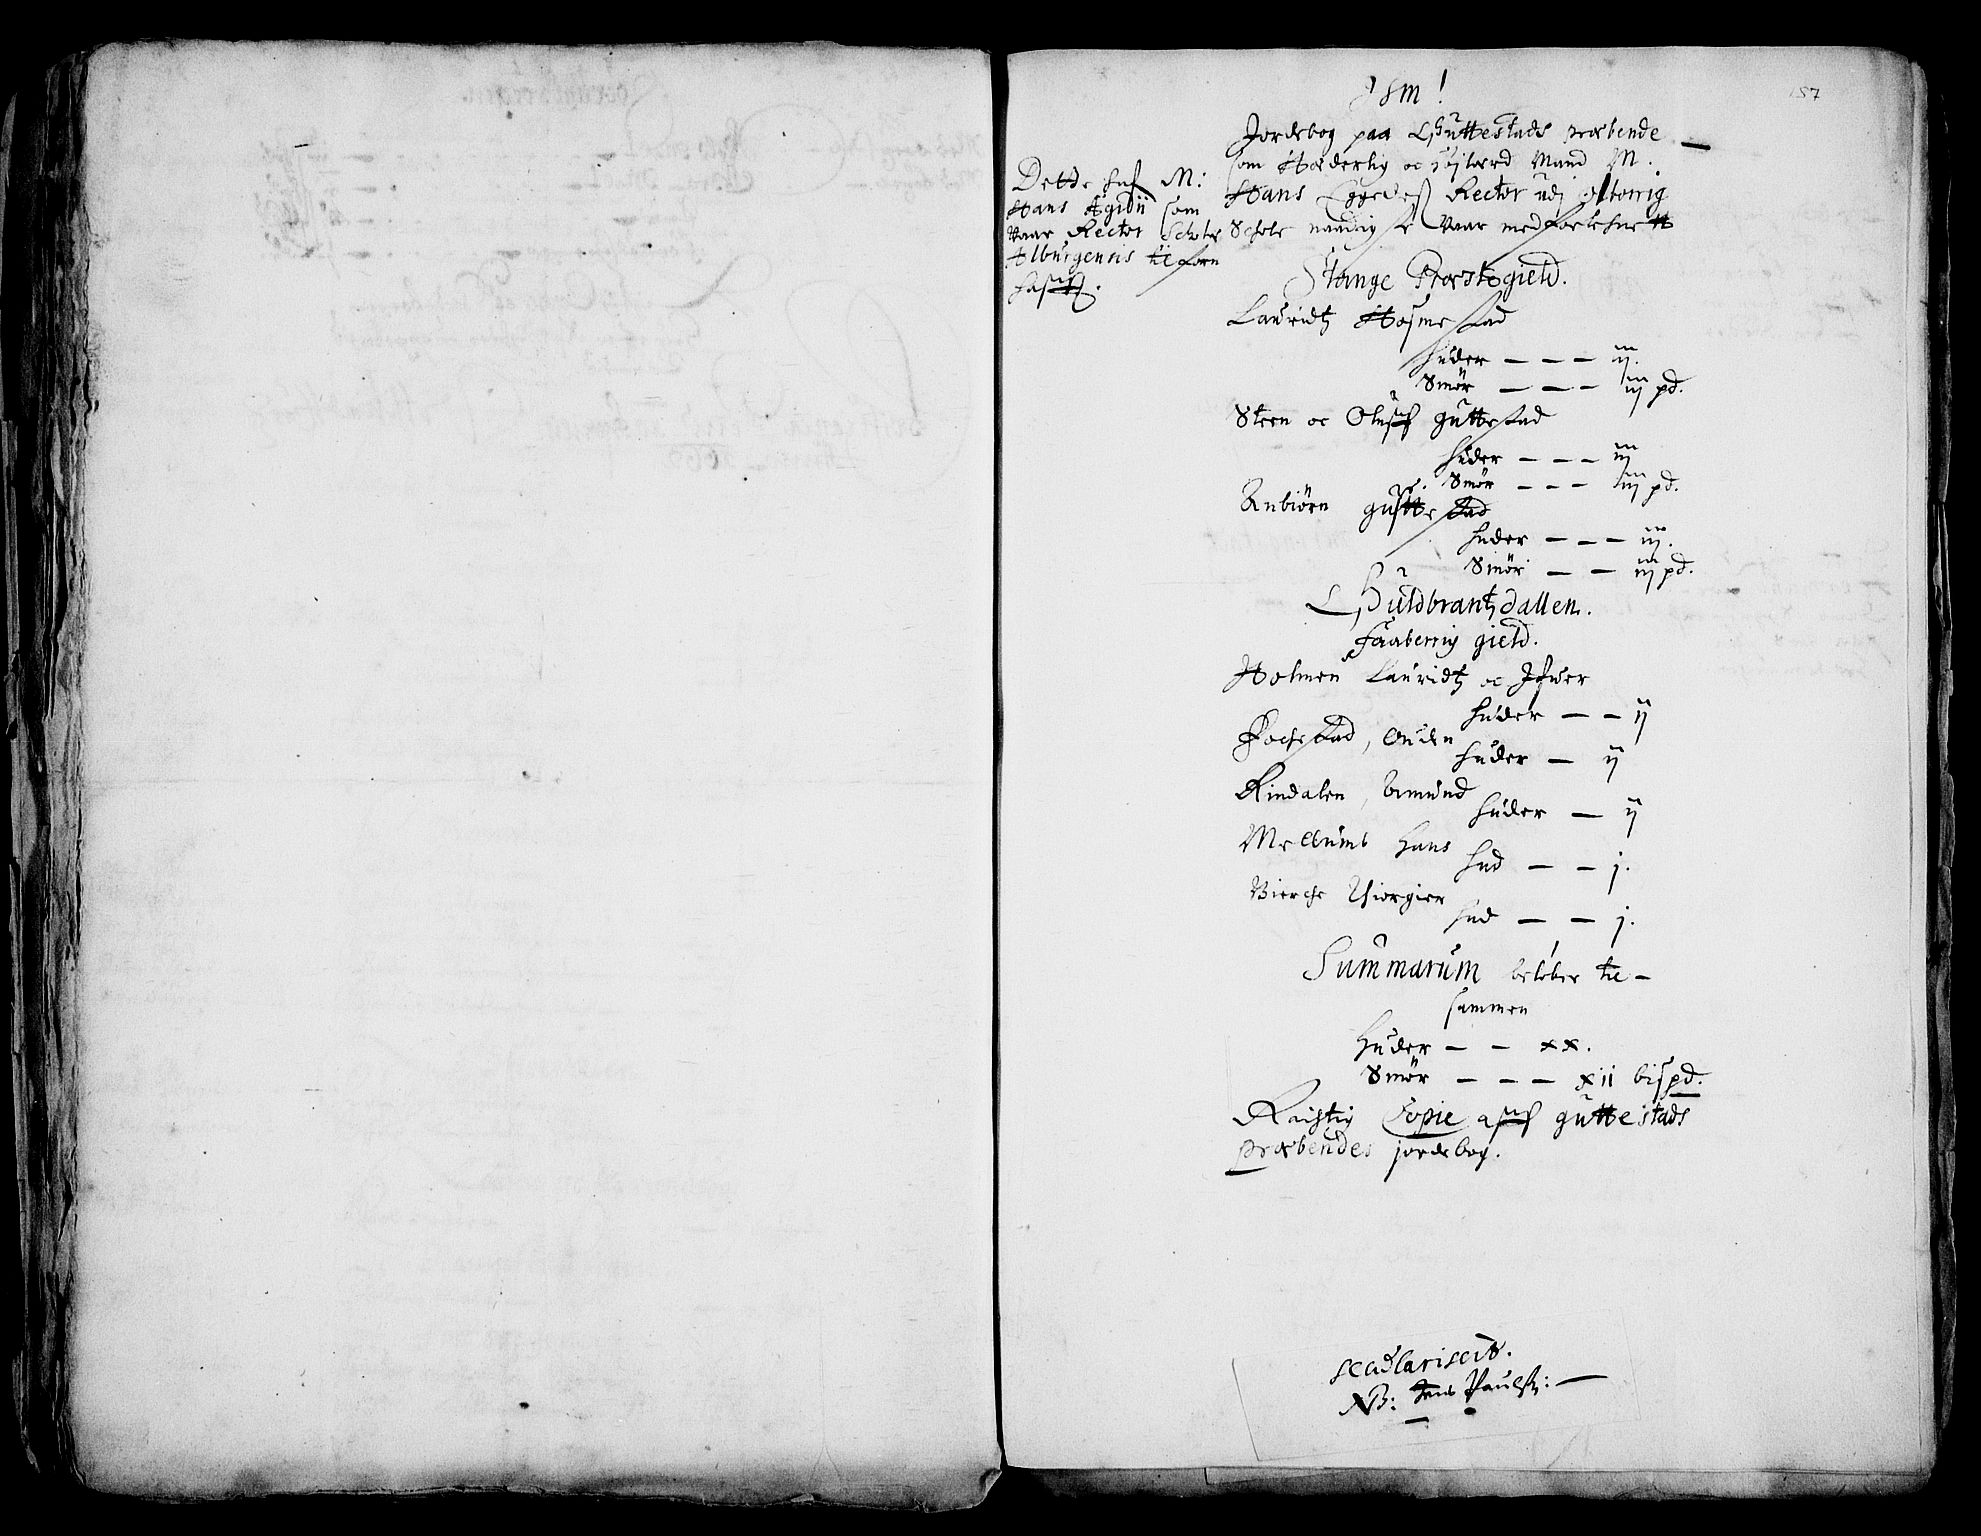 157
Jordebog paa Guttestads præbende
som Hæderlig oc Höjlærd Mand M.
Hans Rector udj
Schole naadigst vaar med forlehnett
Dette haf M:
Hans Ægidii som
vaar Rector Scholæ
Alburgensis tilforn
hafft.
Stange Præstegield.
Lauridtz Hosmestad
huder — — — iij.
Smør — — — iiij pd.
Steen oc Oluff Guttestad
huder — — — iij
Smør — — — iiij pd.
Anbiörn Guttestad
huder — — — iij.
Smør — — iiij pd.
Guldbrantzdallen.
Faaberrig gield.
Holmen Lauridtz oc Ifuer
huder — — ij
Rochstad, Auden
huder — ij
Rindalen, Amund
huder — ij
Mellumb Hans
hud — — j.
Bierche Thorgier
hud — — j.
Summarum beløber til-
sammen
Huder — — xx.
Smør — — — xii bispd.
Richtig Copie aff Guttestads
præbendes jordebog.
Jens Paulss: